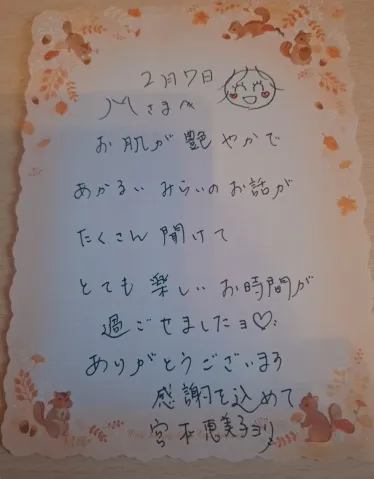 2月7日
Mさまへ
お肌が艶やかで
あかるいみらいのお話が
たくさん聞けて
とても楽しいお時間が
過ごせましたョ♡
ありがとうございます
感謝を込めて
宮本恵美子より